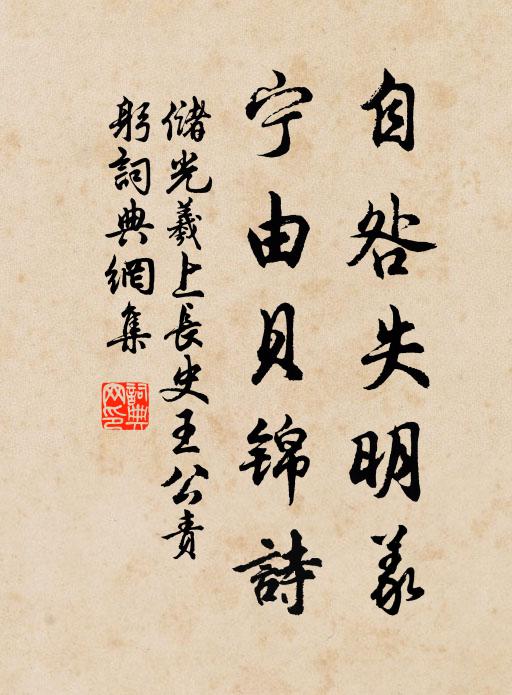 自咎失明义
宁由贝锦詩
儲光羲上長史王公責
躬詞典網集
詞典
网印